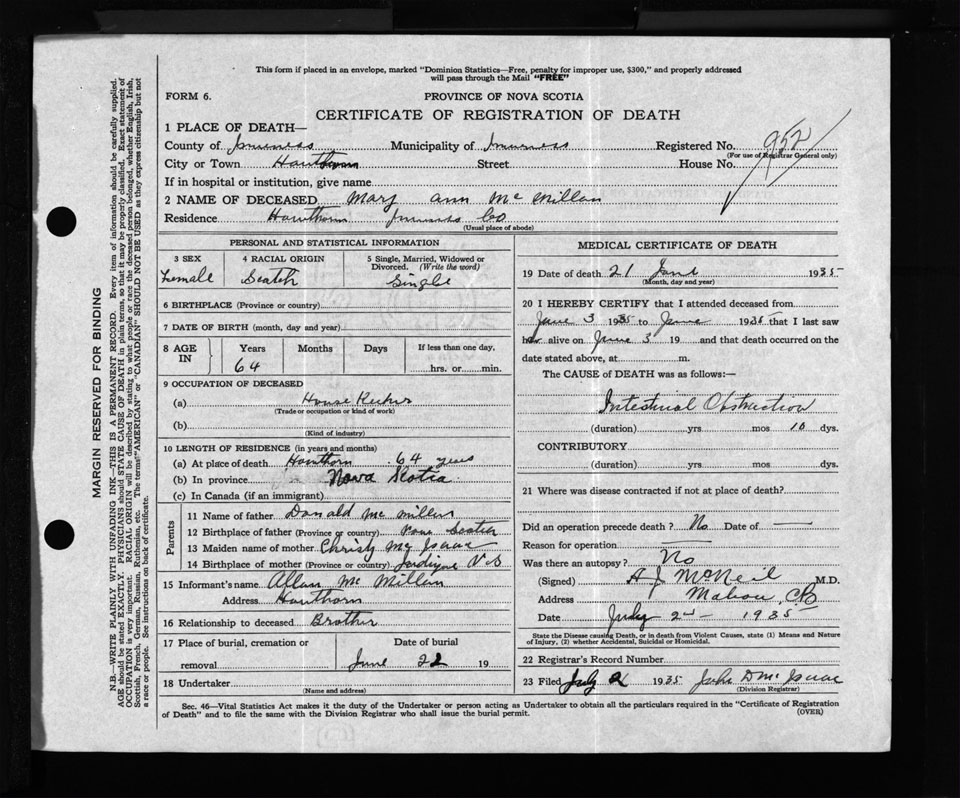 This form if placed in an envelope, marked "Dominion Statistics—Free, penalty for improper use, $300," and properly addressed
will pass through the Mail "FREE"
FORM 6.
PROVINCE OF NOVA SCOTIA
CERTIFICATE OF REGISTRATION OF DEATH
1 PLACE OF DEATH—
County of Inverness Municipality of Inverness Registered No. 952
(For use of Registrar General only)
City or Town Hawthorn Street House No.
If in hospital or institution, give name
2 NAME OF DECEASED Mary Ann McMillan
Residence Hawthorn Inverness Co
(Usual place of abode)
PERSONAL AND STATISTICAL INFORMATION
3 SEX 4 RACIAL ORIGIN 5 Single, Married, Widowed or
Divorced. (Write the word)
Female Scotch Single
6 BIRTHPLACE (Province or country)
7 DATE OF BIRTH (month, day and year)
8 AGE IN Years Months Days If less than one day,
64 hrs. or min.
9 OCCUPATION OF DECEASED
(a) House Keeker
(Trade or occupation or kind of work)
(b)
(Kind of industry)
10 LENGTH OF RESIDENCE (in years and months)
(a) At place of death Hawthorn 64 years
(b) In province Nova Scotia
(c) In Canada (if an immigrant)
Parents
11 Name of father Donald McMillan
12 Birthplace of father (Province or country) Scotch
13 Maiden name of mother Christy McIsaac
14 Birthplace of mother (Province or country)
15 Informant's name Allan McMillan
Address Hawthorn
16 Relationship to deceased Brother
17 Place of burial, cremation or Date of burial
removal June 22 19
18 Undertaker
(Name and address)
MEDICAL CERTIFICATE OF DEATH
19 Date of death 21 June 1935
(Month, day and year)
20 I HEREBY CERTIFY that I attended deceased from
June 3 1935 to June 1935 that I last saw
her alive on June 5 19 and that death occurred on the
date stated above, at m.
The CAUSE of DEATH was as follows:—
Intestinal Obstruction
(duration) yrs mos 10 dys.
CONTRIBUTORY
(duration) yrs. mos. dys.
21 Where was disease contracted if not at place of death?
Did an operation precede death? No Date of —
Reason for operation —
Was there an autopsy? No
(Signed) A J McNeil M.D.
Address Mabou, CB
Date July 2nd 1935
State the Disease causing Death, or in death from Violent Causes, state (1) Means and Nature
of Injury, (2) whether Accidental, Suicidal or Homicidal.
22 Registrar's Record Number
23 Filed July 2 1935 John D McIsaac
(Division Registrar)
Sec. 46—Vital Statistics Act makes it the duty of the Undertaker or person acting as Undertaker to obtain all the particulars required in the "Certificate of Registration
of Death" and to file the same with the Division Registrar who shall issue the burial permit. (OVER)
MARGIN RESERVED FOR BINDING
N.B.—WRITE PLAINLY WITH UNFADING INK—THIS IS A PERMANENT RECORD. Every item of information should be carefully supplied.
AGE should be stated EXACTLY. PHYSICIANS should STATE CAUSE OF DEATH in plain terms, so that it may be properly classified. Exact statement of
OCCUPATION is very important. RACIAL ORIGIN will be described by stating to what people or race the deceased person belonged, whether English, Irish,
Scottish, French, German, Russian, Ruthenian, etc. The terms "AMERICAN" or "CANADIAN" SHOULD NOT BE USED as they express citizenship but not
a race or people. See instructions on back of certificate.